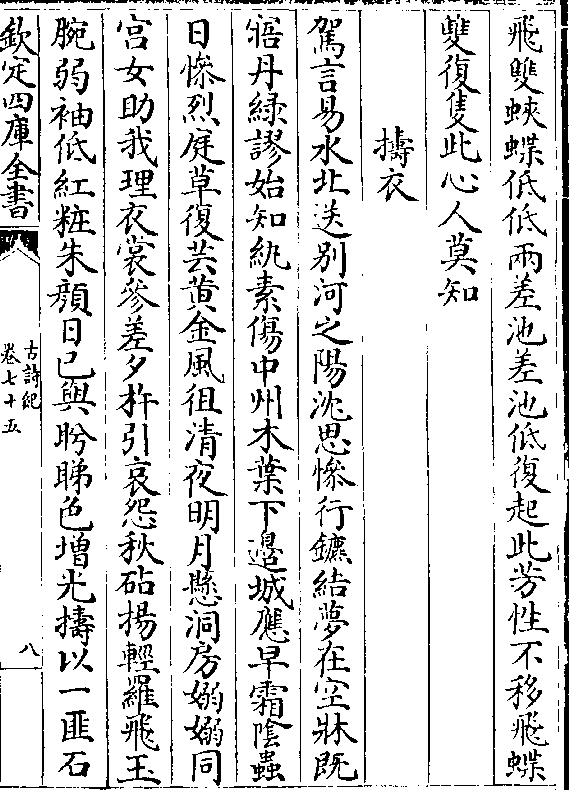 飛雙蛺蝶低低兩差池差池低復起此芳性不移飛蝶
雙復隻此心人莫知
擣衣
駕言易水北送別河之陽沈思慘行鑣結夢在空牀既
寤丹綠謬始知紈素傷中州木葉下邉城應早霜陰蟲
日慘烈庭草復芸黄金風徂清夜明月懸洞房嫋嫋同
宫女助我理衣裳參差夕杵引哀怨秋砧揚輕羅飛玉
腕弱袖低紅粧朱顔日已與眄睇色增光擣以一匪石
欽定四庫全書
古詩紀
卷七十五
八